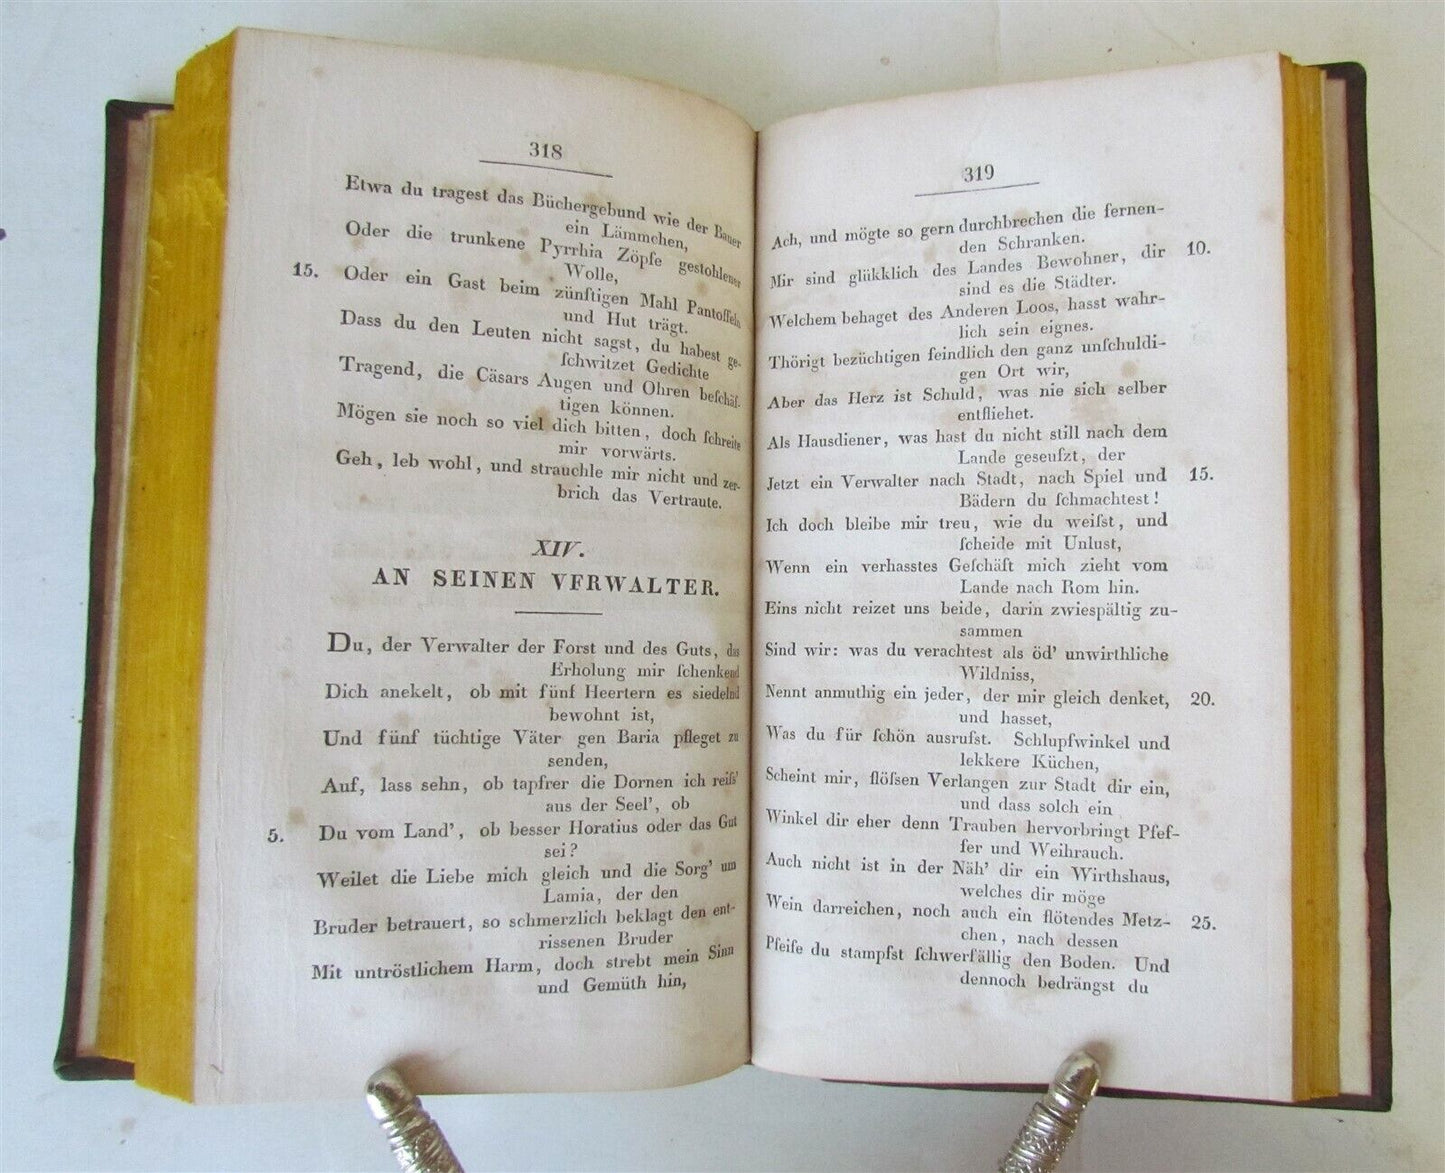 318
Etwa du tragest das Büchergebund wie der Bauer
ein Lämmchen,
Oder die trunkene Pyrrhia Zöpfe gestohlener
Wolle,
15. Oder ein Gast beim zünftigen Mahl Pantoffeln
und Hut trägt.
Dass du den Leuten nicht sagst, du habest ge-
ſchwitzet Gedichte
Tragend, die Cäsars Augen und Ohren beſchäf-
tigen können.
Mögen sie noch so viel dich bitten, doch ſchreite
mir vorwärts.
Geh, leb wohl, und strauchle mir nicht und zer-
brich das Vertraute.
XIV.
AN SEINEN VFRWALTER.
Du, der Verwalter der Forst und des Guts, das
Erholung mir ſchenkend
Dich anekelt, ob mit fünf Heertern es siedelnd
bewohnt ist,
Und fünf tüchtige Väter gen Baria pfleget zu
senden,
Auf, lass sehn, ob tapfrer die Dornen ich reiſs'
aus der Seel', ob
5. Du vom Land', ob besser Horatius oder das Gut
sei?
Weilet die Liebe mich gleich und die Sorg' um
Lamia, der den
Bruder betrauert, so schmerzlich beklagt den ent-
rissenen Bruder
Mit untröstlichem Harm, doch strebt mein Sinn
und Gemüth hin,
319
Ach, und mögte so gern durchbrechen die fernen-
den Schranken.
Mir sind glükklich des Landes Bewohner, dir 10.
sind es die Städter.
Welchem behaget des Anderen Loos, hasst wahr-
lich sein eignes.
Thörigt bezüchtigen feindlich den ganz unſchuldi-
gen Ort wir,
Aber das Herz ist Schuld, was nie sich selber
entfliehet.
Als Hausdiener, was hast du nicht still nach dem
Lande geseufzt, der
Jetzt ein Verwalter nach Stadt, nach Spiel und 15.
Bädern du ſchmachtest!
Ich doch bleibe mir treu, wie du weiſst, und
ſcheide mit Unlust,
Wenn ein verhasstes Geſchäft mich zieht vom
Lande nach Rom hin.
Eins nicht reizet uns beide, darin zwiespältig zu-
sammen
Sind wir: was du verachtest als öd' unwirthliche
Wildniss,
Nennt anmuthig ein jeder, der mir gleich denket, 20.
und hasset,
Was du für ſchön ausrufst. Schlupfwinkel und
lekkere Küchen,
Scheint mir, flöſsen Verlangen zur Stadt dir ein,
und dass solch ein
Winkel dir eher denn Trauben hervorbringt Pfef-
fer und Weihrauch.
Auch nicht ist in der Näh' dir ein Wirthshaus,
welches dir möge
Wein darreichen, noch auch ein flötendes Metz- 25.
chen, nach dessen
Pfeife du stampfst ſchwerfällig den Boden. Und
dennoch bedrängst du